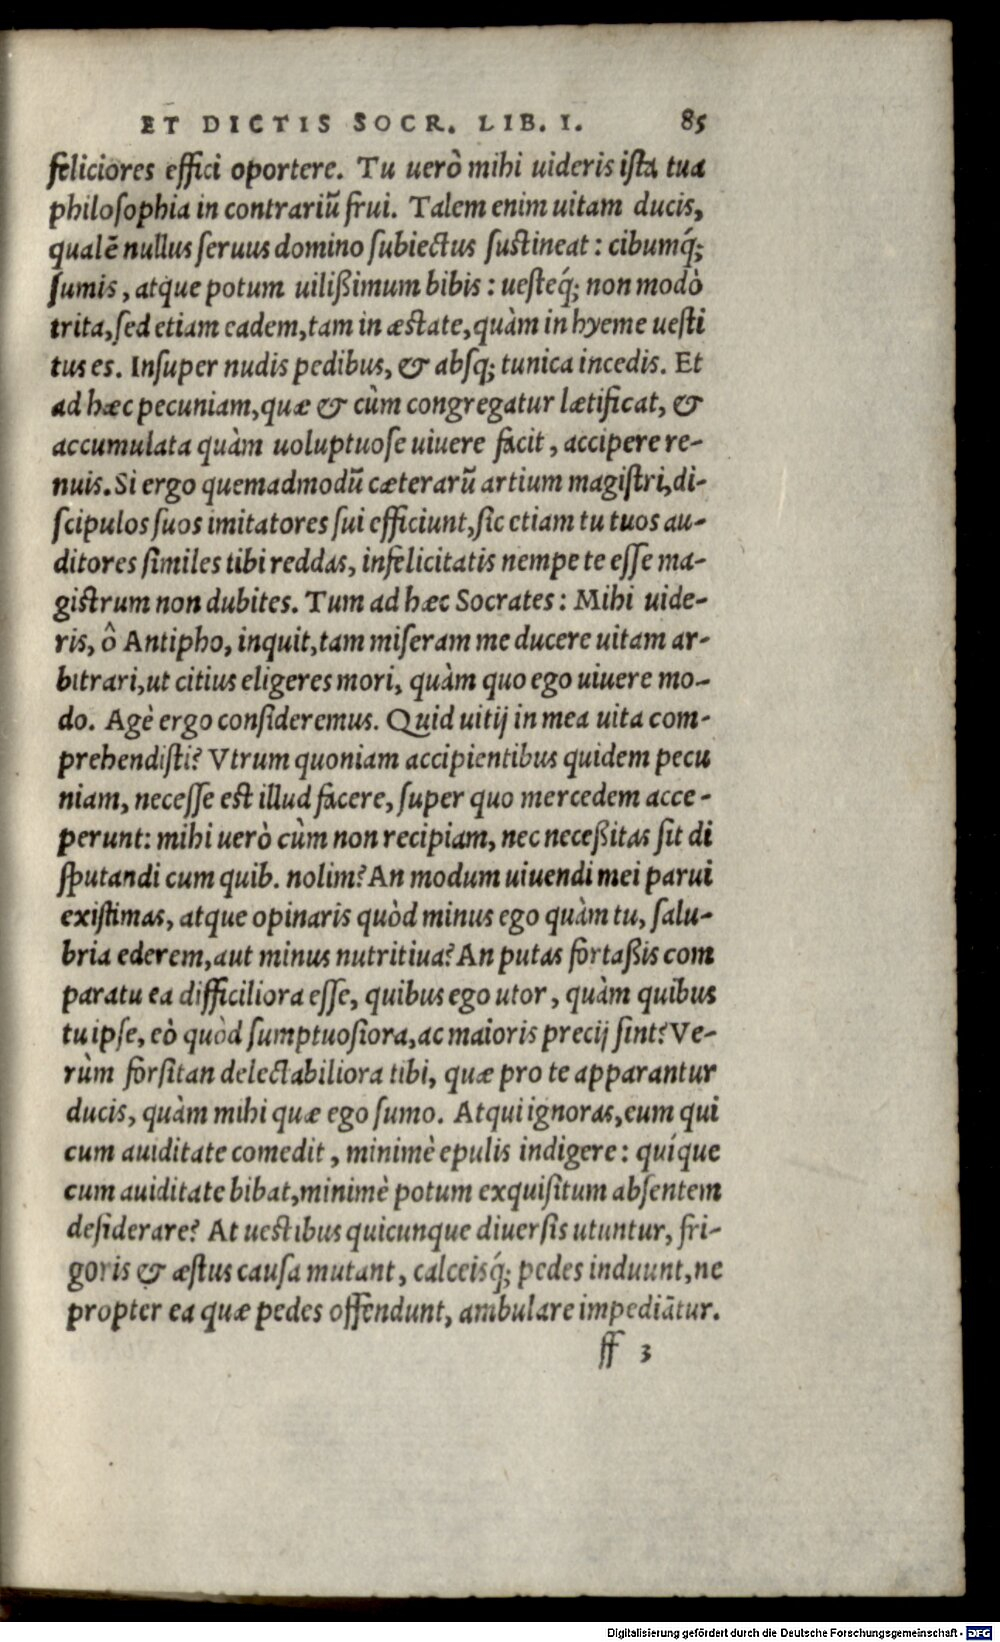 ET DICTIS SOCR. LIB. I. 85
feliciores effici oportere. Tu uerò mihi uideris ista tua
philosophia in contrariũ frui. Talem enim uitam ducis,
qualẽ nullus seruus domino subiectus sustineat: cibumq́;
sumis, atque potum uilißimum bibis: uesteq́; non modò
trita, sed etiam eadem, tam in æstate, quàm in hyeme uesti
tus es. Insuper nudis pedibus, & absq; tunica incedis. Et
ad hæc pecuniam, quæ & cùm congregatur lætificat, &
accumulata quàm uoluptuose uiuere facit, accipere re-
nuis. Si ergo quemadmodũ cæterarũ artium magistri, di-
scipulos suos imitatores sui efficiunt, sic etiam tu tuos au-
ditores similes tibi reddas, infelicitatis nempe te esse ma-
gistrum non dubites. Tum ad hæc Socrates: Mihi uide-
ris, ô Antipho, inquit, tam miseram me ducere uitam ar-
bitrari, ut citius eligeres mori, quàm quo ego uiuere mo-
do. Agè ergo consideremus. Quid uitij in mea uita com-
prehendisti? Vtrum quoniam accipientibus quidem pecu
niam, necesse est illud facere, super quo mercedem acce-
perunt: mihi uerò cùm non recipiam, nec neceßitas sit di
sputandi cum quib. nolim? An modum uiuendi mei parui
existimas, atque opinaris quòd minus ego quàm tu, salu-
bria ederem, aut minus nutritiua? An putas fortaßis com
paratu ea difficiliora esse, quibus ego utor, quàm quibus
tu ipse, eò quòd sumptuosiora, ac maioris precij sint? Ve-
rùm forsitan delectabiliora tibi, quæ pro te apparantur
ducis, quàm mihi quæ ego sumo. Atqui ignoras, eum qui
cum auiditate comedit, minimè epulis indigere: quíque
cum auiditate bibat, minimè potum exquisitum absentem
desiderare? At uestibus quicunque diuersis utuntur, fri-
goris & æstus causa mutant, calceisq́; pedes induunt, ne
propter ea quæ pedes offendunt, ambulare impediãtur.
ff 3
Digitalisierung gefördert durch die Deutsche Forschungsgemeinschaft - DFG